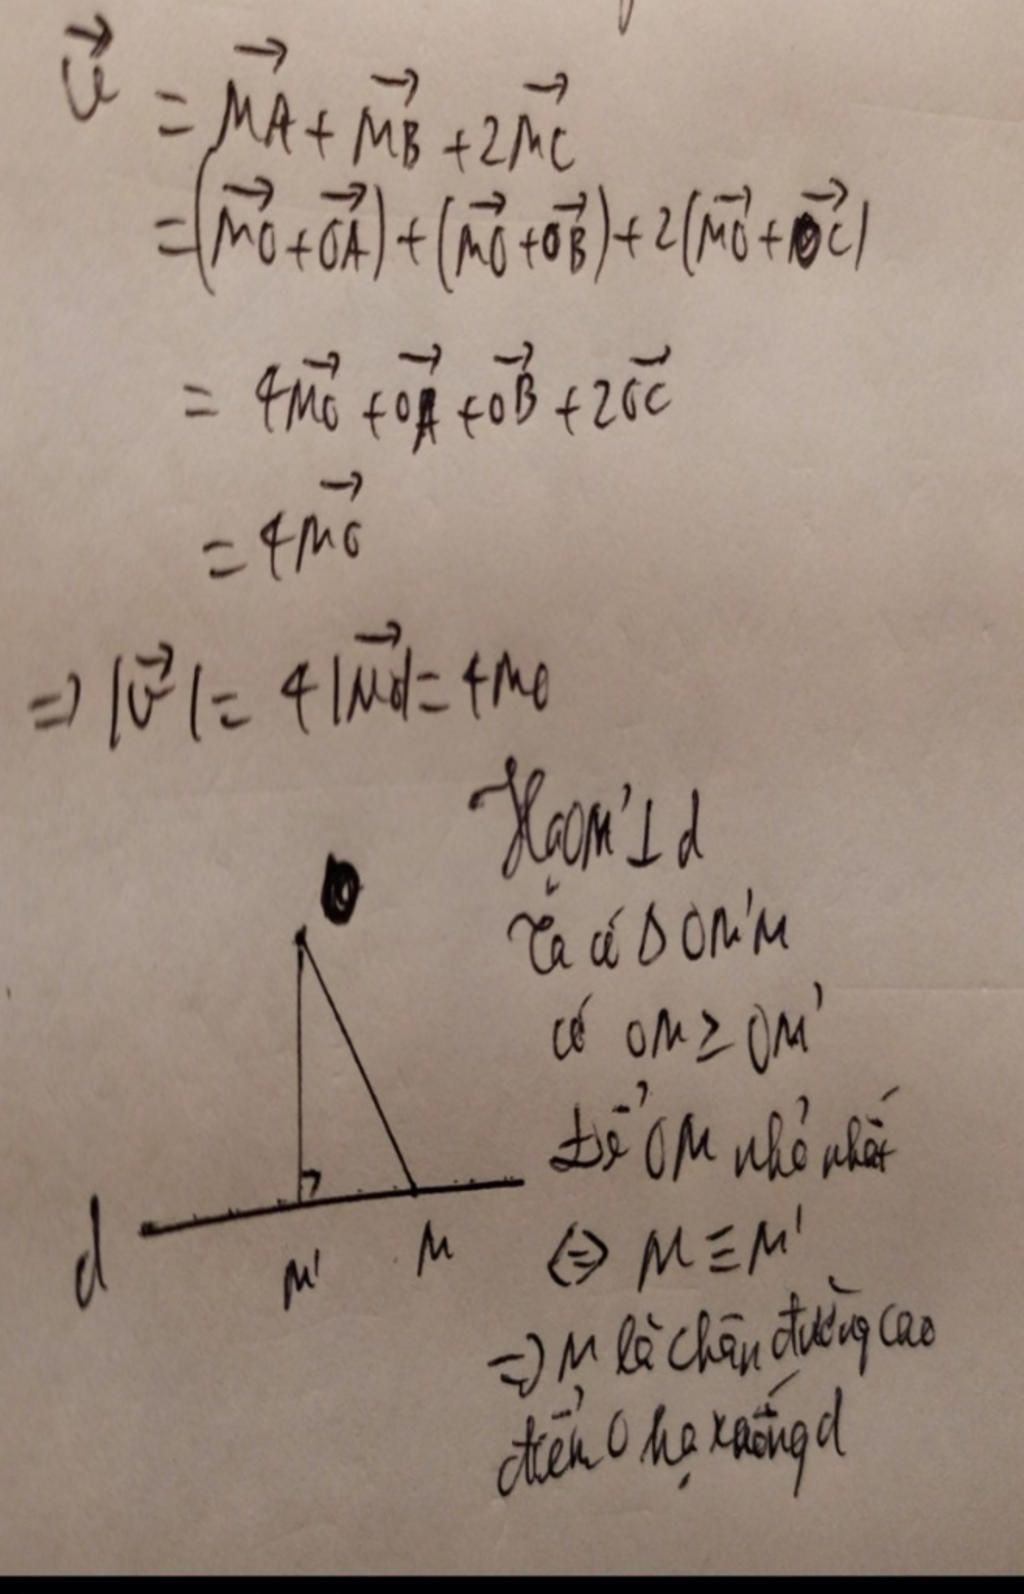 v⃗ = M⃗A + M⃗B + 2M⃗C
= (M⃗O + O⃗A) + (M⃗O + O⃗B) + 2(M⃗O + O⃗C)
= 4M⃗O + O⃗A + O⃗B + 2O⃗C
= 4M⃗O
=> |v⃗| = 4|M⃗O| = 4MO
Hạ OM' ⊥ d
Ta có Δ OM'M
có OM ≥ OM'
Để OM nhỏ nhất
<=> M ≡ M'
=> M là chân đường cao
điểm O hạ xuống d
O
d
M'
M